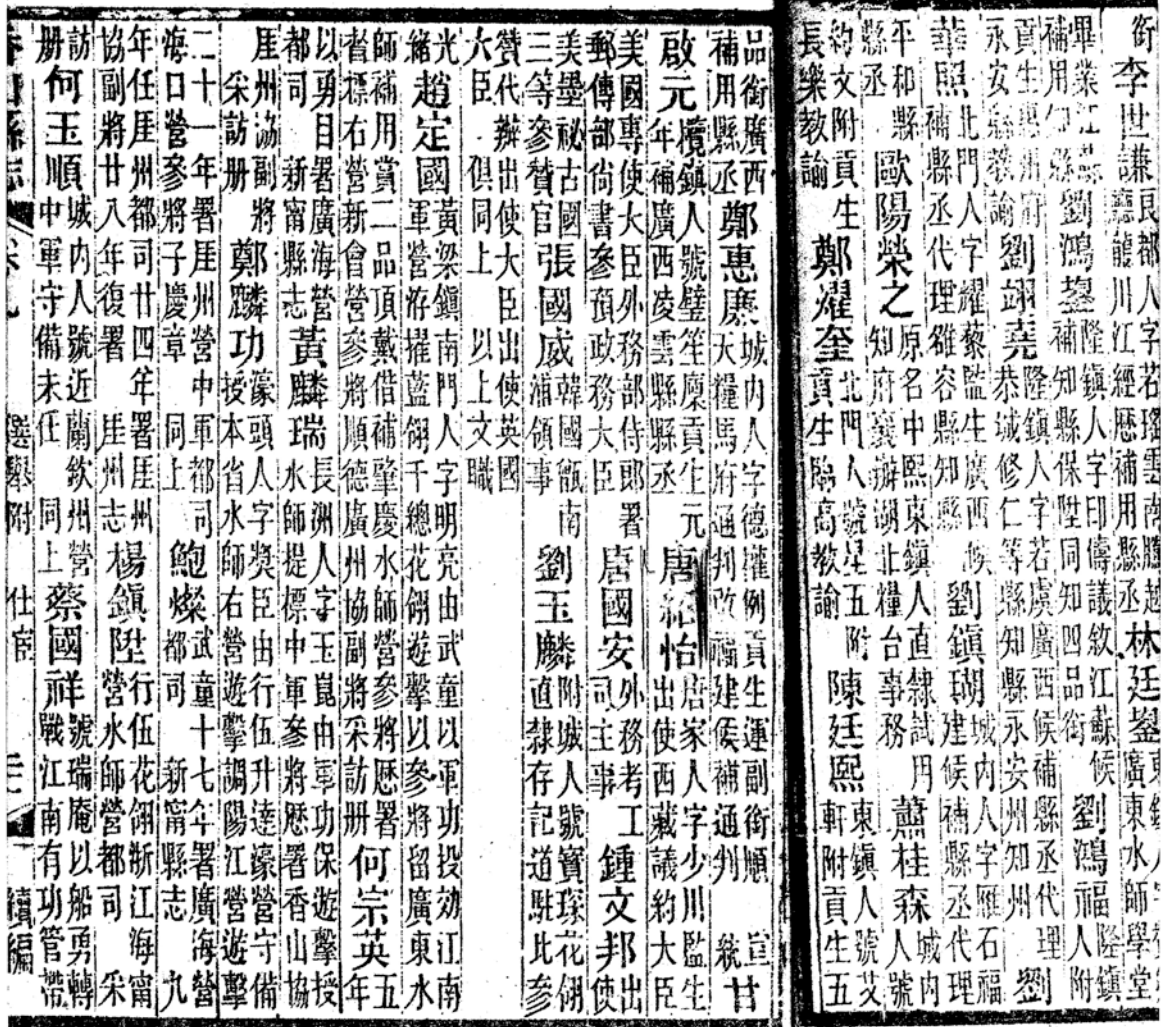 銜李世謙良都人字若瑤雲南騰越廳龍川江經歷補用縣丞林廷鋆廣東水師學堂
畢業江蘇補用知縣劉鴻鋆隆鎮人字印儔議敘江蘇候補知縣保陞同知四品銜劉鴻福隆鎮人附
貢生惠州府永安縣教諭劉翊堯隆鎮人字若虞廣西候補縣丞代理恭城修仁等縣知縣永安州知州劉
華照北門人字耀藜監生廣西候補縣丞代理雒容縣知縣劉鎮瑚城內人字雁石福建候補縣丞代理
平和縣縣丞歐陽榮之原名中熙東鎮人直隸試用知府襄辦湖北糧台事務蕭桂森城內人號
約文附貢生長樂教諭鄭耀奎北門人號星五附貢生臨高教諭陳廷熙東鎮人號艾軒附貢生五
品銜廣西補用縣丞鄭惠廉城內人字德權例貢生運副銜順天糧馬府通判改福建候補通判 宣統甘
啟元欖鎮人號璧笙廩貢生元年補廣西凌雲縣縣丞唐紹怡唐家人字少川監生出使西藏議約大臣
美國專使大臣外務部侍郎署郵傳部尚書參預政務大臣唐國安外務考工司主事鍾文邦出使
美墨秘古國三等參贊官張國威韓國甑南浦領事劉玉麟附城人號寶琛花翎直隸存記道駐比參
贊代辦出使大臣出使英國大臣 俱同上 以上文職
光緒趙定國黃梁鎮南門人字明亮由武童以軍功投効江南軍營洊擢藍翎千總花翎遊擊以參將留廣東水
師補用賞二品頂戴借補肇慶水師營參將歷署督標右營新會營參將順德廣州協副將采訪册何宗英五年
以勇目署廣海營都司 新甯縣志黃麟瑞長洲人字玉崑由軍功保遊擊授水師提標中軍參將歷署香山協
厓州協副將采訪册鄭麟功濠頭人字奬臣由行伍升達濠營守備授本省水師右營遊擊調陽江營遊擊
二十一年署厓州營中軍都司海口營參將子慶章 同上鮑燦武童十七年署廣海營都司 新甯縣志 九
年任厓州都司廿四年署厓州協副將廿八年復署 厓州志楊鎮陞行伍花翎浙江海甯營水師營都司 采
訪册何玉順城內人號近蘭欽州營中軍守備未任 同上蔡國祥號瑞庵以船勇轉戰江南有功管帶
香山縣志 卷九 選舉附 仕宦 續編